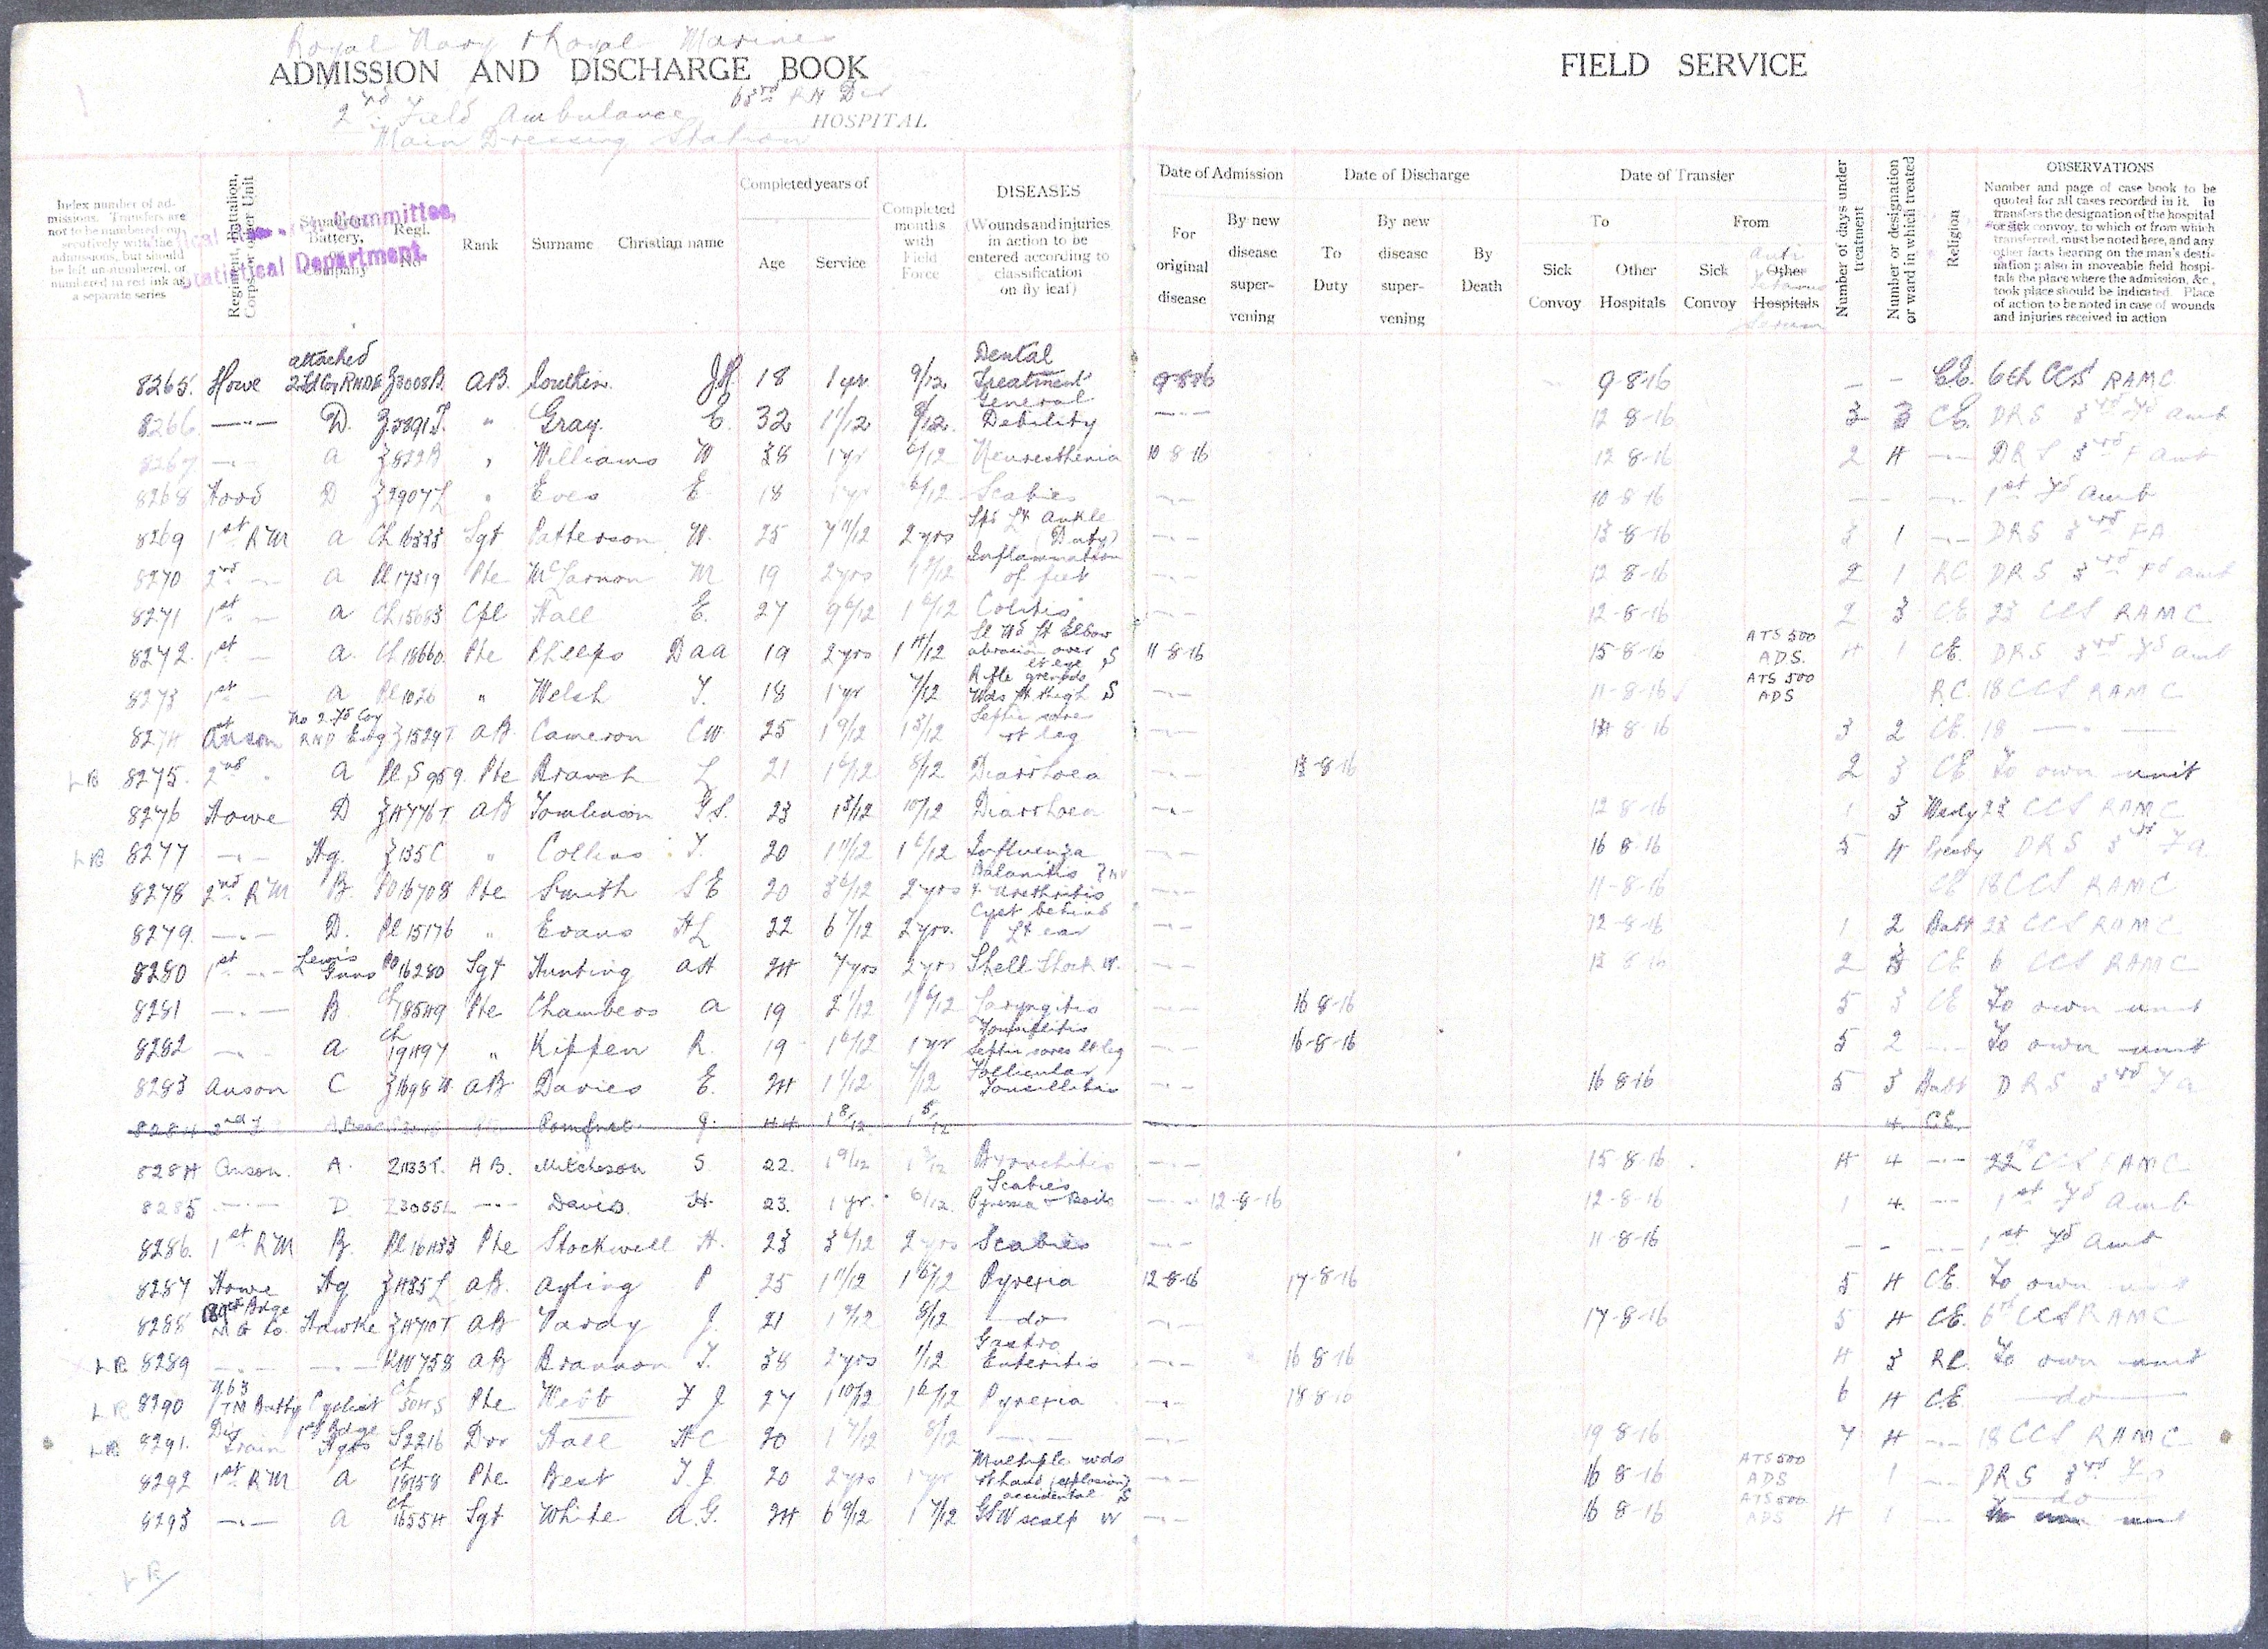 Royal Navy & Royal Marines
ADMISSION AND DISCHARGE BOOK
FIELD SERVICE
2nd Field Ambulance 63rd RN Div
HOSPITAL
Main Dressing Station
Index number of admissions. Transfers are not to be numbered consecutively with the admissions, but should be left unnumbered, or numbered in red ink as a separate series
Regiment, Battalion, Corps, or other Unit
Squadron, Battery, Company
Regl. No.
Committee,
Statistical Department.
Rank
Surname Christian name
Completed years of
Age Service
Completed months with Field Force
DISEASES
(Wounds and injuries in action to be entered according to classification on fly leaf)
Date of Admission
For original disease
By new disease supervening
Date of Discharge
To Duty
By new disease supervening
By Death
Date of Transfer
To
Sick Convoy
Other Hospitals
From
Sick Convoy
Other Hospitals
Anti Tetanus Serum
Number of days under treatment
Number or designation or ward in which treated
Religion
OBSERVATIONS
Number and page of case book to be quoted for all cases recorded in it. In transfers the designation of the hospital or sick convoy, to which or from which transferred, must be noted here, and any other facts bearing on the man's destination; also in moveable field hospitals the place where the admission, &c., took place should be indicated. Place of action to be noted in case of wounds and injuries received in action
8265. Howe attached 2 Fd Coy RNDE A.B. J.H. 18 1 yr 9/12 Dental Treatment 9-8-16 9-8-16 — — CE. 6th CCS RAMC
8266. —"— D. " Gray. E. 32 1 1/12 8/12. General Debility —"— 12 8-16 3 3 CE. DRS 3rd Fd Amb
8267 —"— A " Williams W 38 1 yr 6/12 Neuresthenia 10-8-16 12 8-16 2 4 —"— DRS 3rd F Amb
8268 Hood D Z2907L " Eves E. 18 1 yr 6/12 Scabies —"— 10-8-16 — — 1st Fd Amb
8269 1st RM A Ch 16333 Sgt Patterson W. 25 7 11/12 2 yrs Spr Lt Ankle (Duty) —"— 13-8-16 3 1 —"— DRS 3rd FA
8270 2nd —"— A Pl 17319 Pte McLarnon M 19 2 yrs Inflammation of feet —"— 12 8-16 2 1 RC DRS 3rd Fd Amb
8271 1st —"— A Ch 15083 Cpl Hall E. 27 9 6/12 1 6/12 Colitis —"— 12-8-16 2 3 CE 23 CCS RAMC
8272. 1st — A. Ch 18660. Pte Phelps D A A 19 2 yrs 1 11/12 Sl Wd Lt Elbow abrasion over lt eye S 11-8-16 15-8-16 ATS 500 ADS. 4 1 CE. DRS 3rd Fd Amb
8273 1st — A Pl 1026 " Welsh T. 18 1 yr 7/12 Rifle grenade Wds rt thigh S —"— 11-8-16 ATS 500 ADS R.C. 18 CCS RAMC
8274 Anson No 2 Fd Coy RND Eng Z1524T AB Cameron C W. 25 1 9/12 1 3/12 Septic sore rt leg —"— 8-16 3 2 CE. 18 —"—
LR 8275. 2nd " A Pl. S 959. Pte Branch L 21 1 6/12 8/12 Diarrhoea —"— 13-8-16 2 3 CE To own unit
8276 Howe D Z4776T AB Tomlinson G.S. 23 1 3/12 10/12 Diarrhoea —"— 12 8-16 1 3 Wesly 23 CCS RAMC
LR 8277 —"— Hq. Z135C " Collins T. 20 1 11/12 1 6/12 Influenza —"— 16 8-16 5 4 Presby DRS 3rd Fa
8278 2nd RM B. PO 16708 Pte Smith S E 20 3 6/12 2 yrs Balanitis & Urethritis —"— 11-8-16 CE 18 CCS RAMC
8279. —"— D. Pl 15176 " Evans H L 22 6 7/12 2 yrs. Cyst behind Lt ear —"— 12-8-16 1 2 Bapt 23 CCS RAMC
8280 1st —"— Lewis Guns PO 16280 Sgt Hunting A H 24 7 yrs 2 yrs Shell Shock W. —"— 13 8-16 2 3 CE 6 CCS RAMC
8281 —"— B. Ch 18549 Pte Chambers A 19 2 1/12 1 6/12 Laryngitis —"— 16 8-16 5 3 CE To own unit
8282 —"— A Ch 19497 " Kippen R. 19 1 6/12 1 yr Tonsillitis Septic sores lt leg —"— 16-8-16 5 2 —"— To own unit
8283 Anson C Z1698W AB Davies E. 24 1 1/12 7/12 Follicular Tonsillitis —"— 16 8-16 5 3 Bapt DRS 3rd Fa
8284 2nd Pomfret J. 44 1 8/12 1 5/12 —"— 4 C.E.
8284 Anson. A. Z1133T. A B. Mitcheson S. 22. 1 9/12 Bronchitis —"— 15-8-16 4 4 —"— CCS RAMC
8285 —"— D. Z3055L —"— Davis. H. 23. 1 yr. 6/12. Scabies Pyrexia & Boils —"— 12-8-16 12-8-16 1 4. —"— 1st Fd Amb
8286. 1st RM B. Pl 16433 Pte Stockwell H. 23 3 6/12 2 yrs Scabies —"— 11-8-16 — - —"— 1st Fd Amb
8287 Howe Hq Z1435L AB. Ayling P 25 1 11/12 1 6/12 Pyrexia 12-8-16 17-8-16 5 4 CE. To own unit
8288 189th Bdge M G Co. Hawke Z4710T AB Pardy J. 21 1 9/12 8/12 —do— 17-8-16 5 4 CE. 6th CCS RAMC
LR 8289 —"— —"— KW 758 AB Brannon T. 38 2 yrs 1/12 Gastro Enteritis —"— 16 8-16 4 3 RC. To own unit
LR 8290 TM Batty Cyclist Pte Webb F J 27 1 10/12 1 6/12 Pyrexia —"— 18 8-16 6 4 C.E. —do—
LR 8291. Div Train 1st Bdge Hqrs S2216 Dvr Hall H C 20 1 7/12 8/12 —"— —"— 19-8-16 7 4 —"— 18 CCS RAMC
8292 1st RM A Ch 18158 Pte Best T. J. 20 2 yrs 1 yr Multiple wds rt hand (explosion) accidental S —"— 16 8-16 ATS 500 ADS 1 —"— DRS 3rd Fa
8293 —"— A Ch 16554 Sgt White A. G. 24 6 9/12 1 7/12 GSW scalp W —"— 16 8-16 ATS 500 ADS 4 1 —"— —do—
LR